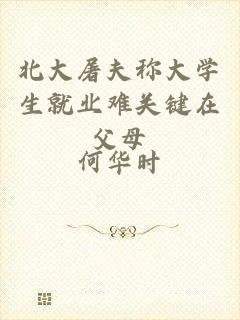 北大屠夫称大学
生就业难关键在
父母
何华时